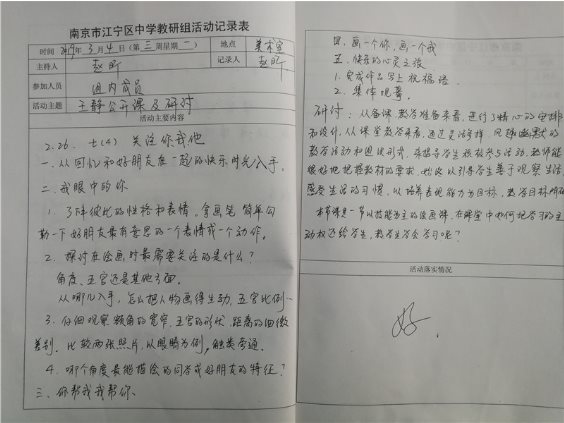 南京市江宁区中学教研组活动记录表
时间 2019年3月4日(第三周星期二) 地点 美术室
主持人 赵昕 记录人 赵昕
参加人员 组内成员
活动主题 王静公开课及研讨
活动主要内容
2.26. 七(4) 关注你我他
一.从回忆和好朋友在一起的快乐时光入手。
二.我眼中的你
1.了解彼此的性格和表情,拿画笔简单勾
勒一下好朋友最有意思的一个表情或一个动作。
2.探讨在绘画时最需要关注的是什么?
角度、五官还是其他方面。
从哪儿入手,怎么把人物画得生动,五官比例一
3.仔细观察额角的宽窄,五官的形状 距离的细微
差别。比较两张照片,从眼睛为例,触类旁通。
4.哪个角度最能描绘的同学或好朋友的特征?
三.你帮我我帮你。
四.画一个你,画一个我
五.快乐的心灵之旅
1.完成作品写上祝福语.
2.集体观赏。
研讨:从备课,教学准备来看,进行了精心的安排
和设计,从课堂教学来看,通过灵活多样 风趣幽默的
教学活动和组织形式,来提高学生积极参与活动,教师能
很好地把握教材的要求,她以引导学生善于观察生活
感受生活的习惯,以培养表现能力为目标,教学目标明确
本节课是一节以技能为主的绘画课,在课堂中如何把学习的主
动权还给学生,教学生学会学习呢?
活动落实情况
好.